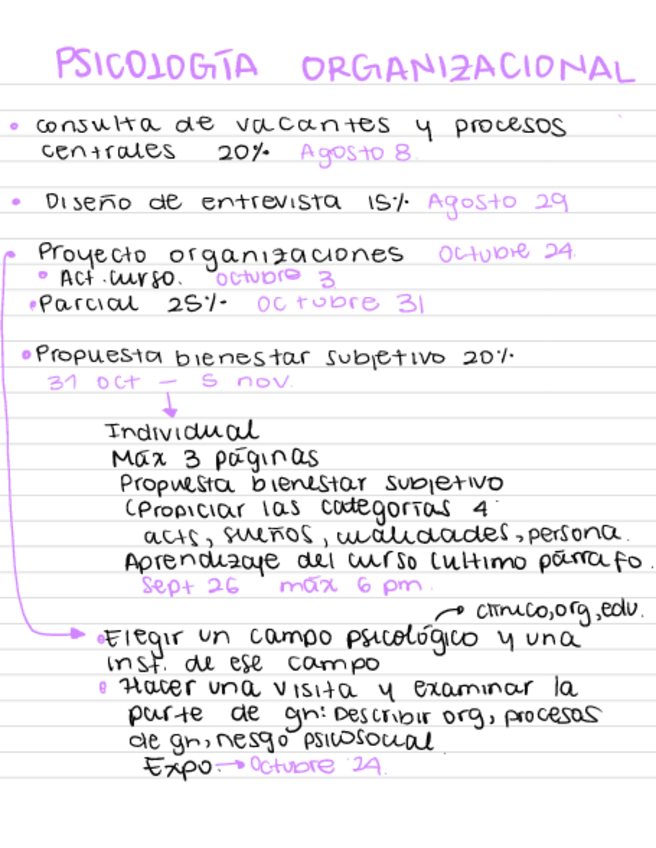 PSICOLOGÍA ORGANIZACIONAL
• consulta de vacantes y procesos
centrales 20% Agosto 8
• Diseño de entrevista 15% Agosto 29
• Proyecto organizaciones Octubre 24
• Act. curso. octubre 3
• Parcial 25% octubre 31
• Propuesta bienestar subjetivo 20%
31 oct — 5 nov.
↓
Individual
Máx 3 páginas
Propuesta bienestar subjetivo
(Propiciar las categorías 4
acts, sueños, cualidades, persona.
Aprendizaje del curso (ultimo párrafo.
Sept 26 máx 6 pm.
→ clínico, org, edu.
• Elegir un campo psicológico y una
inst. de ese campo
• Hacer una visita y examinar la
parte de gh: Describir org, procesos
de gh, riesgo psicosocial
Expo. → Octubre 24.